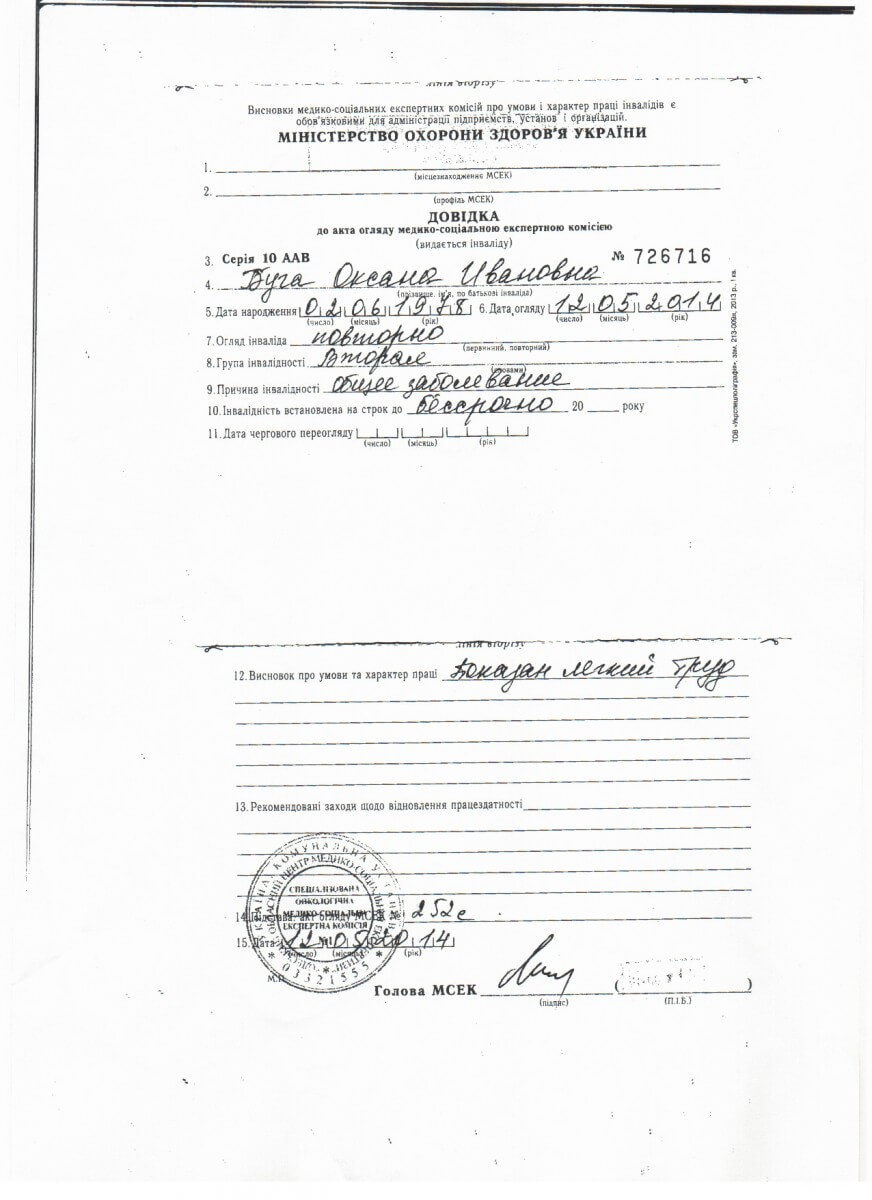 лінія відрізу
Висновки медико-соціальних експертних комісій про умови і характер праці інвалідів є
обов'язковими для адміністрації підприємств, установ і організацій.
МІНІСТЕРСТВО ОХОРОНИ ЗДОРОВ'Я УКРАЇНИ
1.
(місцезнаходження МСЕК)
2.
(профіль МСЕК)
ДОВІДКА
до акта огляду медико-соціальною експертною комісією
(видається інваліду)
3. Серія 10 ААВ № 726716
4. Буга Оксана Ивановна
(прізвище, ім'я, по батькові інваліда)
5. Дата народження 02 06 1978 6. Дата огляду 12 05 2014
(число) (місяць) (рік) (число) (місяць) (рік)
7. Огляд інваліда повторно
(первинний, повторний)
8. Група інвалідності Вторая
(словами)
9. Причина інвалідності Общее заболевание
10. Інвалідність встановлена на строк до бессрочно 20 року
11. Дата чергового переогляду
(число) (місяць) (рік)
ТОВ «Укрспецполіграфія», зам. 213-009и, 2013 р., І кв.
лінія відрізу
12. Висновок про умови та характер праці Показан легкий труд
13. Рекомендовані заходи щодо відновлення працездатності
14. Підстава: акт огляду МСЕК № 252е
15. Дата 12 05 2014
(число) (місяць) (рік)
СПЕЦІАЛІЗОВАНА
ОНКОЛОГІЧНА
МЕДИКО-СОЦІАЛЬНА
ЕКСПЕРТНА КОМІСІЯ
№1
03321555
М.П.
Голова МСЕК ( )
(підпис) (П.І.Б.)